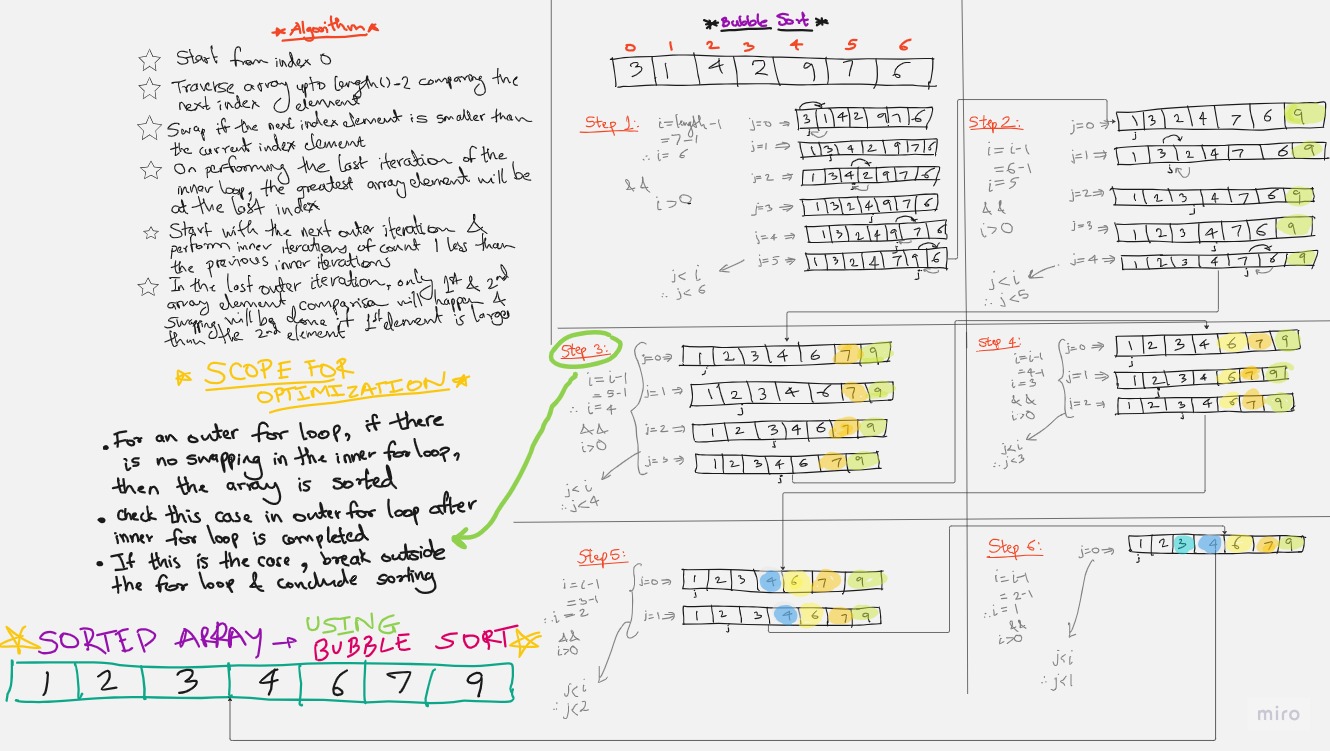 * Algorithm *
Start from index 0
Traverse array upto length()-2 comparing the
next index element
Swap if the next index element is smaller than
the current index element
On performing the last iteration of the
inner loop, the greatest array element will be
at the last index
Start with the next outer iteration &
perform inner iterations of count 1 less than
the previous inner iterations
In the last outer iteration, only 1st & 2nd
array element comparison will happen &
swapping will be done if 1st element is larger
than the 2nd element
* SCOPE FOR
OPTIMIZATION *
• For an outer for loop, if there
is no swapping in the inner for loop,
then the array is sorted
• check this case in outer for loop after
inner for loop is completed
• If this is the case, break outside
the for loop & conclude sorting
SORTED ARRAY → USING
BUBBLE SORT
1 2 3 4 6 7 9
* Bubble Sort *
0 1 2 3 4 5 6
3 1 4 2 9 7 6
Step 1:
i = length-1
= 7-1
∴ i = 6
&&
i>0
j=0 ⇒ 3 1 4 2 9 7 6
j=1 ⇒ 1 3 4 2 9 7 6
j=2 ⇒ 1 3 4 2 9 7 6
j=3 ⇒ 1 3 2 4 9 7 6
j=4 ⇒ 1 3 2 4 9 7 6
j=5 ⇒ 1 3 2 4 7 9 6
j<i
∴ j<6
Step 2:
i = i-1
= 6-1
i = 5
&&
i>0
j=0 ⇒ 1 3 2 4 7 6 9
j=1 ⇒ 1 3 2 4 7 6 9
j=2 ⇒ 1 2 3 4 7 6 9
j=3 ⇒ 1 2 3 4 7 6 9
j=4 ⇒ 1 2 3 4 7 6 9
j<i
∴ j<5
Step 3:
i = i-1
= 5-1
∴ i = 4
&&
i>0
j=0 ⇒ 1 2 3 4 6 7 9
j=1 ⇒ 1 2 3 4 6 7 9
j=2 ⇒ 1 2 3 4 6 7 9
j=3 ⇒ 1 2 3 4 6 7 9
j<i
∴ j<4
Step 4:
i=i-1
=4-1
i=3
&&
i>0
j=0 ⇒ 1 2 3 4 6 7 9
j=1 ⇒ 1 2 3 4 6 7 9
j=2 ⇒ 1 2 3 4 6 7 9
j<i
∴ j<3
Step 5:
i=i-1
=3-1
∴ i = 2
&&
i>0
j=0 ⇒ 1 2 3 4 6 7 9
j=1 ⇒ 1 2 3 4 6 7 9
j<i
∴ j<2
Step 6:
i = i-1
= 2-1
∴ i = 1
&&
i>0
j=0 ⇒ 1 2 3 4 6 7 9
j<i
∴ j<1
miro